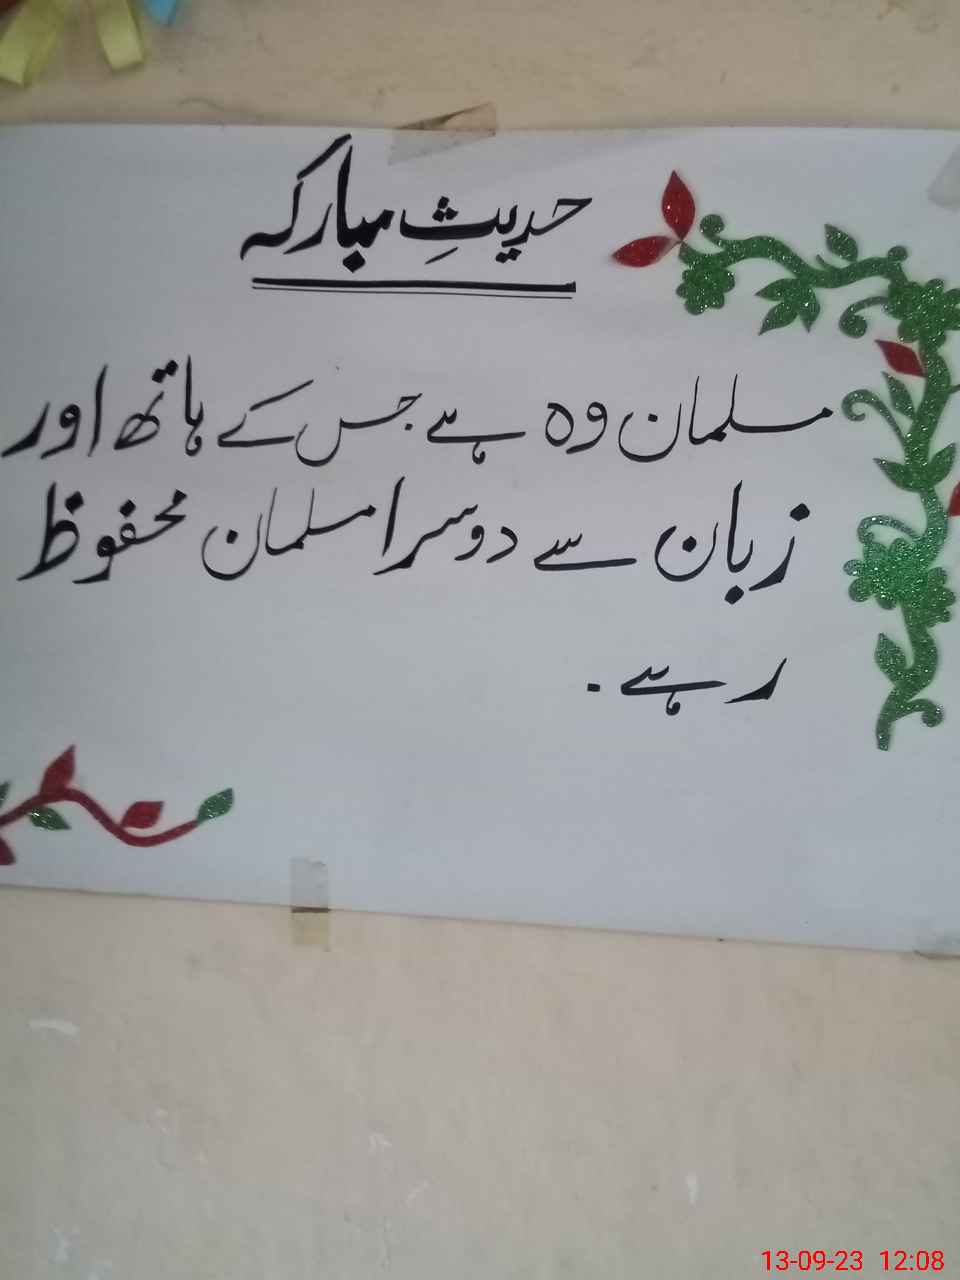 حدیثِ مبارکہ
مسلمان وہ ہے جس کے ہاتھ اور
زبان سے دوسرا مسلمان محفوظ
رہے .
13-09-23 12:08